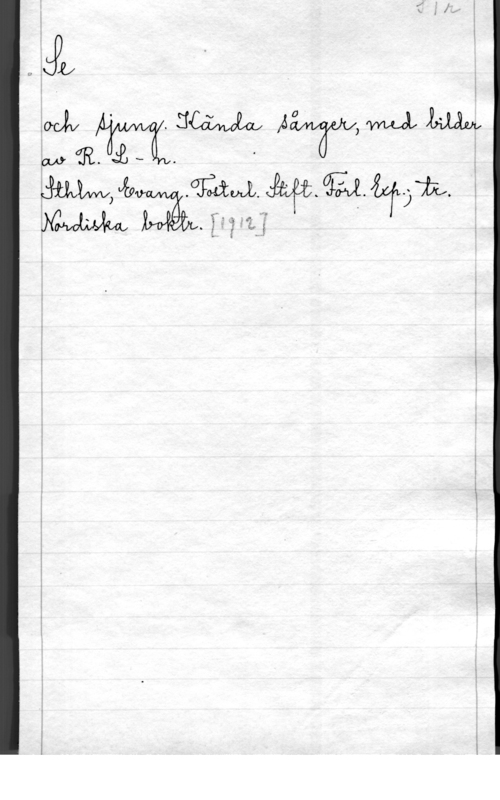 Se
och sjung. Kända sånger, med bilder
av R. L-n.
Sthlm, Evang. Fosterl. Stift. Förl. Exp.; tr.
Nordiska boktr. [1912]